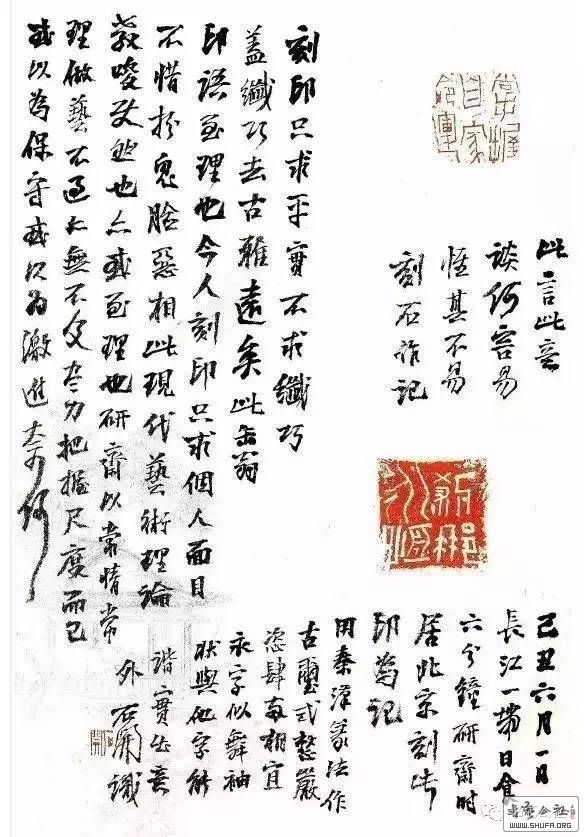 掌握
自家
命運
此言此意
談何容易
惟其不易
刻石作記
刻印只求平實不求纖巧
蓋纖巧去古雅遠矣此缶翁
印語至理也今人刻印只求個人面目
不惜扮鬼臉惡相此現代藝術理論
教唆使然也亦或至理也研齋以常情常
理做藝不過太無不及盡力把握尺度而已
或以為保守或以為激進奈何
己丑六月一日
長江一帶日食
六分鐘研齋時
居北京刻此
印為記
用秦漢篆法作
古璽式整嚴
恣肆兩相宜
永字似舞袖
狀與他字能
諧實出意
外石開識
书法公社
WWW.SHUFA.ORG